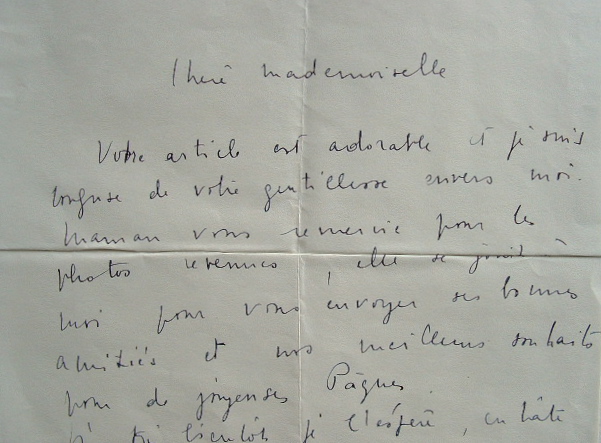 Chère mademoiselle
Votre article est adorable et je suis
confuse de votre gentillesse envers moi.
Maman vous remercie pour les
photos revenues, elle se joint à
moi pour vous envoyer ses bonnes
amitiés et nos meilleurs souhaits
pour de joyeuses Pâques.
bientôt je l'espère, en hâte